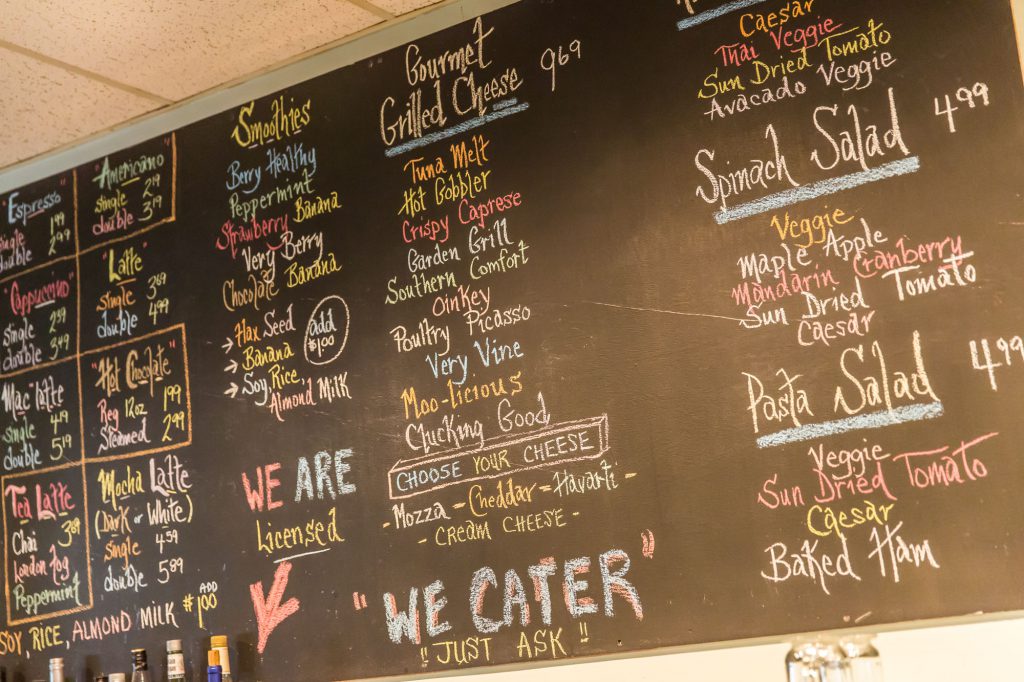 "Espresso"
single 1.99
double 2.99
"Americano"
single 2.19
double 3.19
"Cappuccino"
single 2.59
double 3.59
"Latte"
single 3.69
double 4.99
"Mac"latte
single 4.19
double 5.19
"Hot Chocolate"
Reg 12oz 1.99
Steamed 2.99
Tea Latte
3.89
Chai
London Fog
Peppermint
Mocha Latte
(Dark or White)
single 4.59
double 5.89
SOY, RICE, ALMOND MILK $1.00 ADD
Smoothies
Berry Healthy
Peppermint
Strawberry Banana
Very Berry
Chocolate Banana
→ Flax Seed
→ Banana
→ Soy, Rice
Almond Milk
add $1.00
WE ARE
Licensed
Gourmet
Grilled Cheese 969
Tuna Melt
Hot Gobbler
Crispy Caprese
Garden Grill
Southern Comfort
Oinkey
Poultry Picasso
Very Vine
Moo-licious
Clucking Good
CHOOSE YOUR CHEESE
- Mozza - Cheddar - Havarti -
- CREAM CHEESE -
"WE CATER"
!! JUST ASK !!
Caesar
Thai Veggie
Sun Dried Tomato
Avacado Veggie
Spinach Salad 499
Veggie
Maple Apple
Mandarin Cranberry
Sun Dried Tomato
Caesar
Pasta Salad 499
Veggie
Sun Dried Tomato
Caesar
Baked Ham